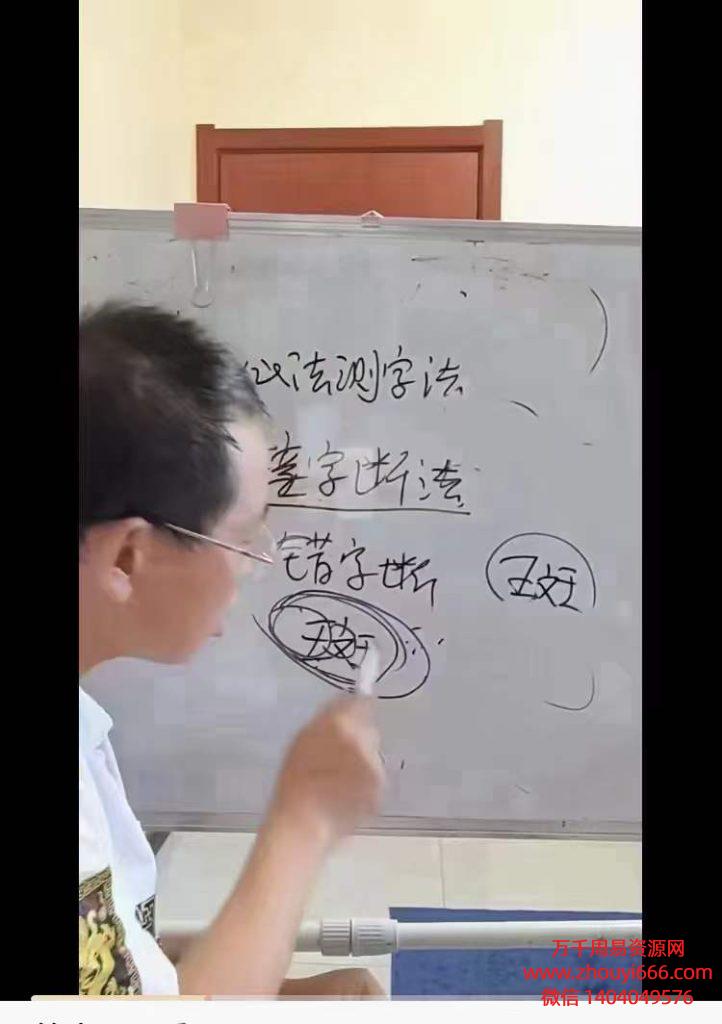 法测字法
字断法
错字断
王文王
万千周易资源网
www.zhouyi666.com
微信 1404049576